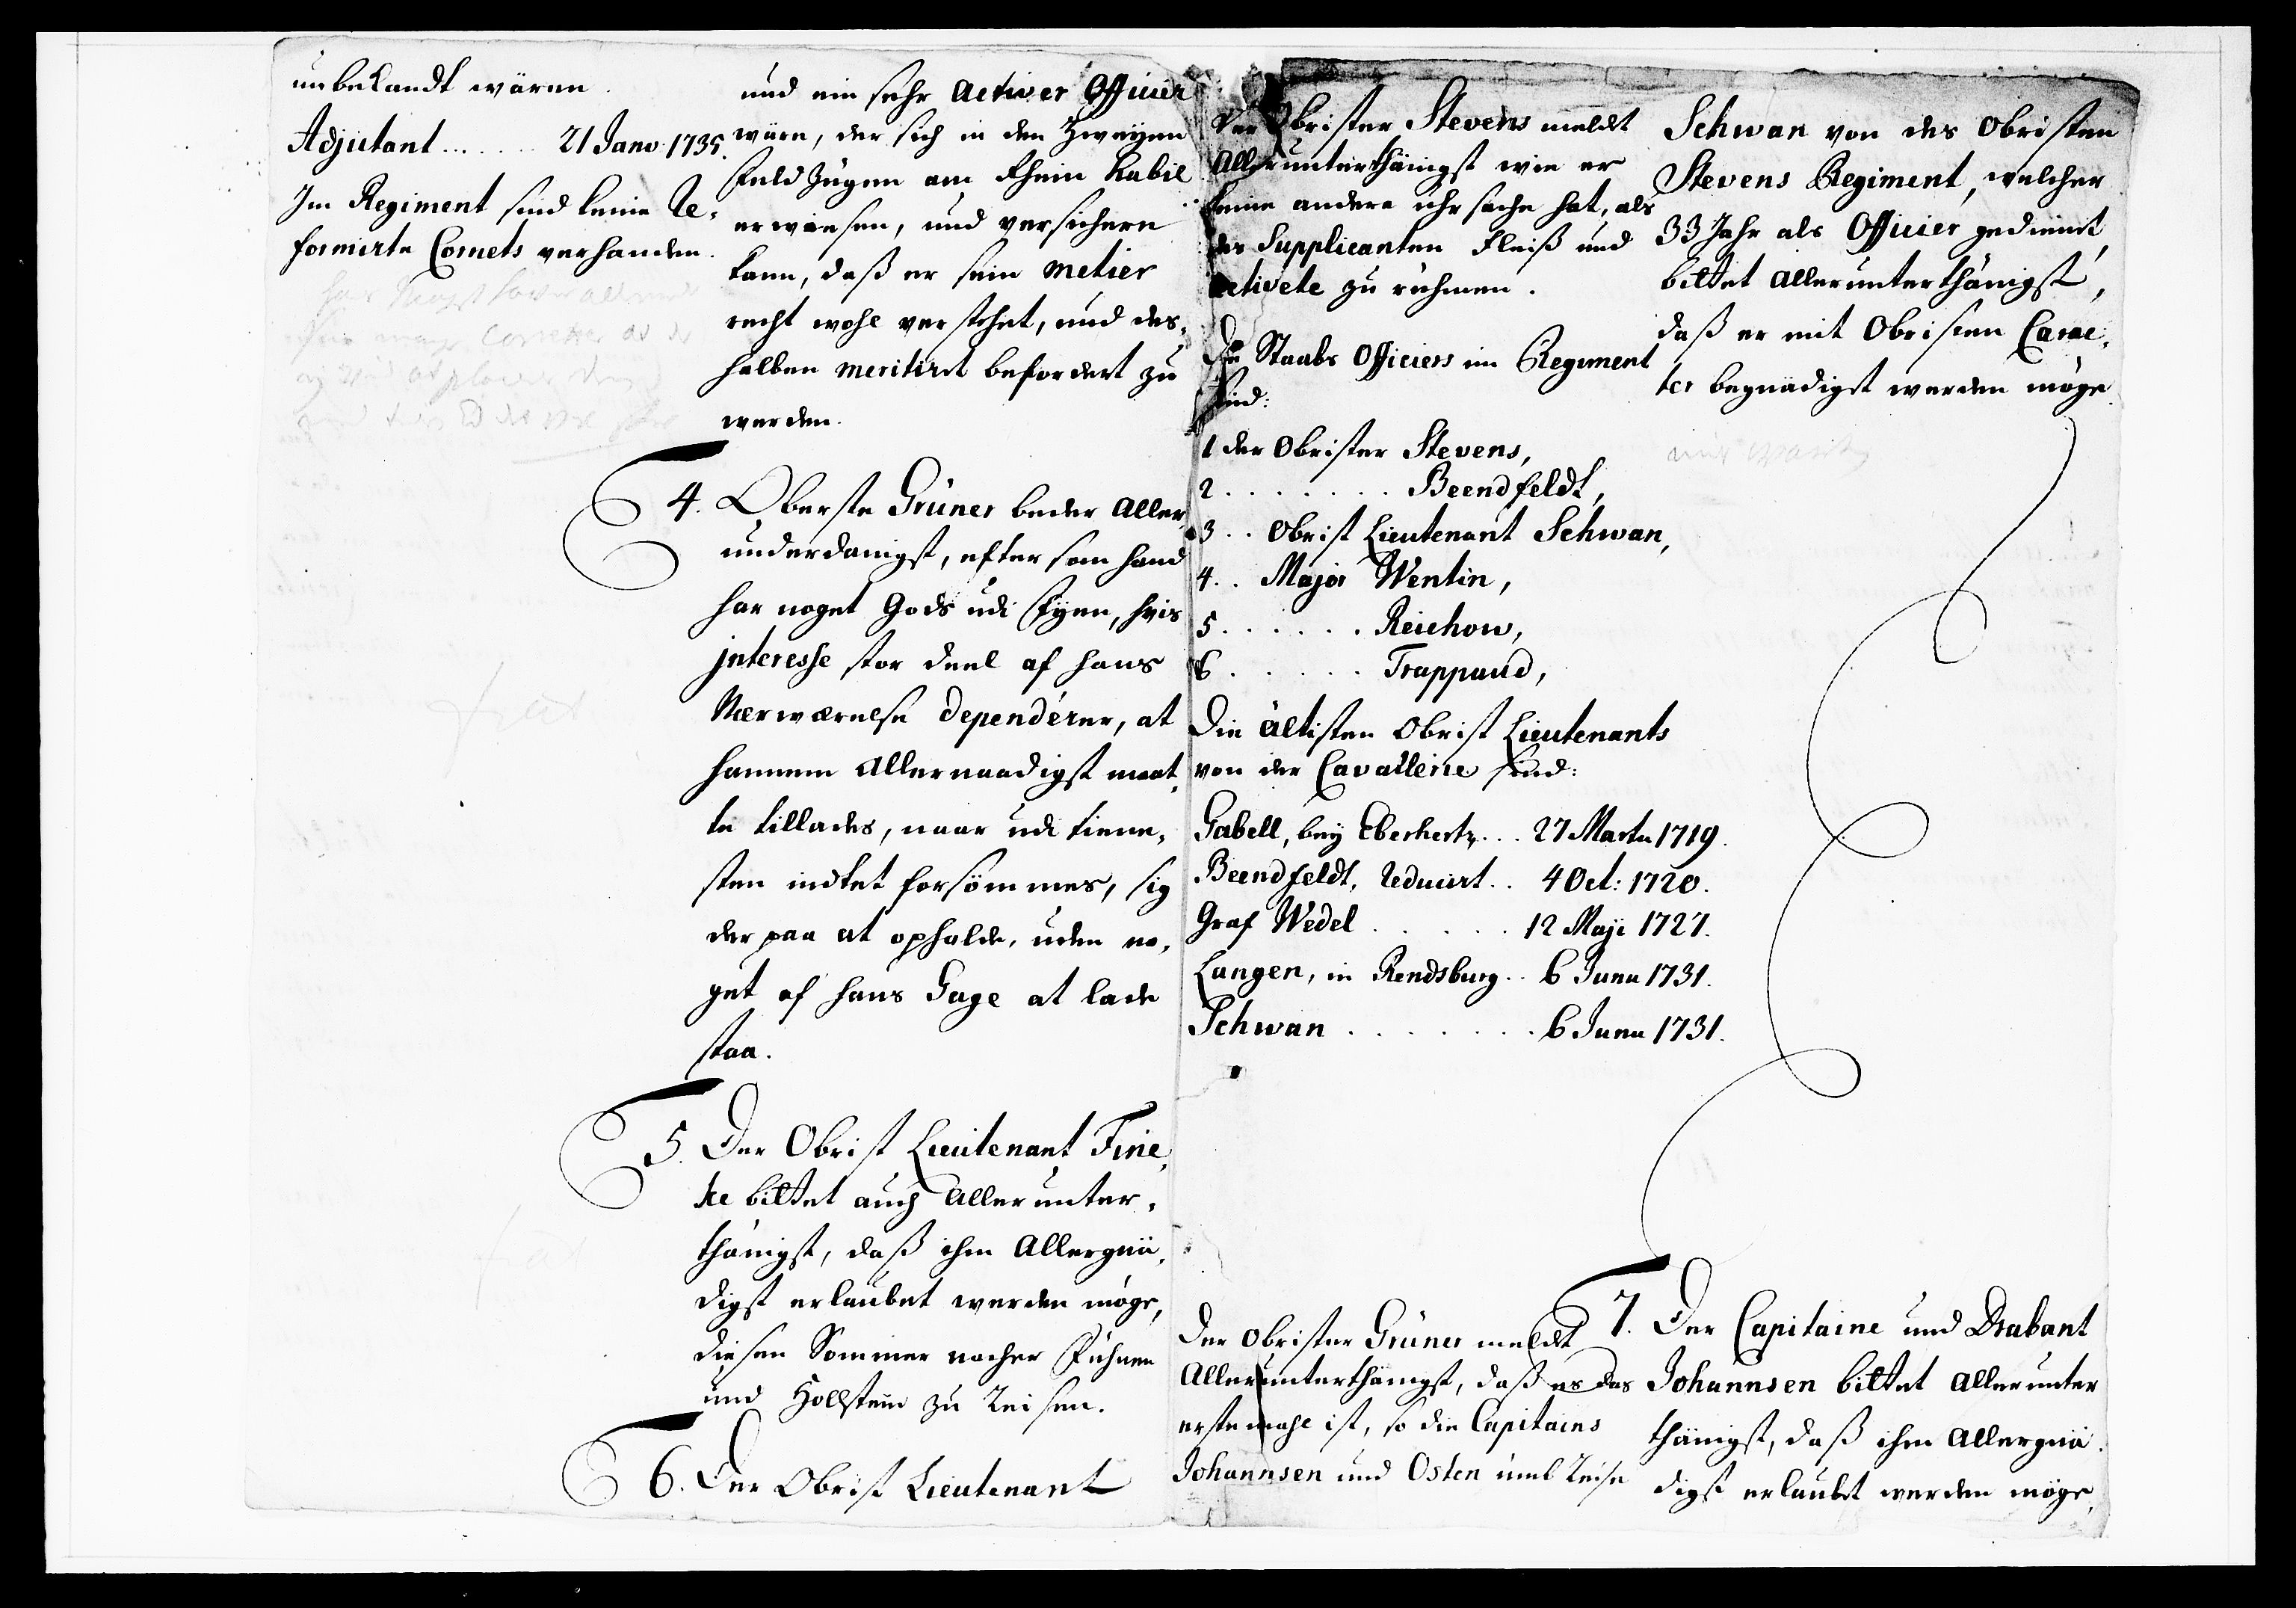 unbekandt wären.
Adjutant ...... 21 Janv 1735.
Im Regiment sind keine Re-
formirte Cornets verhanden.
und ein sehr activer Officier
wäre, der sich in den zweyen
Feldzügen am Rhein habil
erwiesen, und versichern
kann, daß er sein metier
recht wohl verstehet, und des-
halben meritiret befordert zu
werden.
4. Oberste Grüner beder Aller-
underdanigst, eftersom hand
har noget Gods udi Fyen, hvis
interesse stor deel af hans
Nærværelse dependérer, at
hannem Allernaadigst maat-
te tillades, naar udi tiene-
sten indtet forsömmes, sig
der paa at opholde, uden no-
get af hans Gage at lade
staa.
5. Der Obrist Lieutenant Finc-
ke bittet auch Allerunter-
thänigst, daß ihm Allergnä-
digst erlaubet werden möge,
diesen Sommer nacher Fühnen
und Hollstein zu reisen.
6. Der Obrist Lieutenant
Der Obrister Stevens meldt
Allerunterthänigst wie er
keine andere uhrsache hat, als
des Supplicanten Fleiß und
activete zu rühmen.
Die Staabs Officiers im Regiment
sind:
1 der Obrister Stevens,
2 ........ Beendfeldt,
3 .. Obrist Lieutenant Schwan,
4 .. Major Wentin,
5 ...... Reichow,
6 ...... Trappaud,
Die ältisten Obrist Lieutenants
von der Cavallerie sind:
Gabell, bey Eberhertz ... 27 Marty 1719.
Beendfeldt, reducirt .. 4 Oct: 1720.
Graf Wedel ..... 12 Maji 1727.
Langen, in Rendsburg .. 6 Juny 1731.
Schwan ....... 6 Juny 1731.
Der Obrister Grüner meldt
Allerunterthänigst, daß es das
erste mahl ist, so die Capitains
Johannsen und Osten umb reise
Schwan von des Obristen
Stevens Regiment, welcher
33 Jahr als Officier gedienet,
bittet Allerunterthänigst,
daß er mit Obristen Carac-
ter begnädigst werden möge.
7. Der Capitaine und Drabant
Johannsen bittet Allerunter
thänigst, daß ihm Allergnä-
digst erlaubt werden möge,